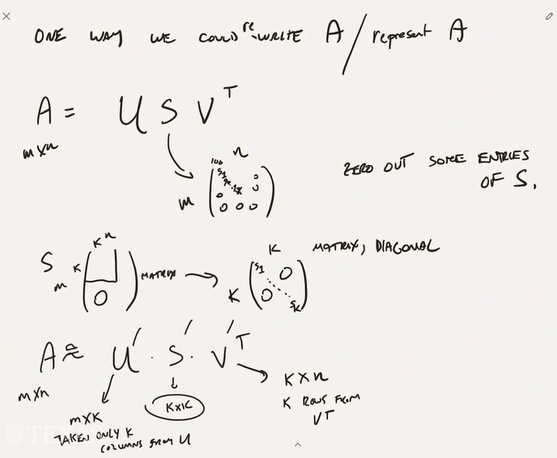 ONE WAY WE COULD re-WRITE A / represent A
A = U S Vᵀ
m×n
n
m
0
0
0 0 0
ZERO OUT SOME ENTRIES
OF S,
S m K K n 0 MATRIX → K K S1 0 0 SK MATRIX, DIAGONAL
A ≈ U′ · S′ · V′ᵀ
m×n
m×K
TAKEN ONLY K
COLUMNS FROM U
K×K
K×n
K ROWS FROM
Vᵀ